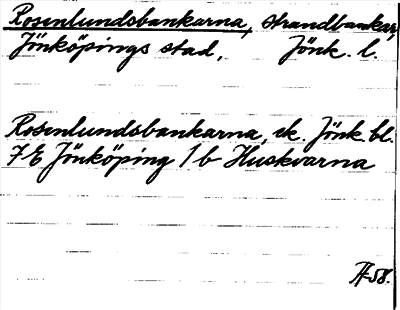 Rosenlundsbankarna, strandbankar,
Jönköpings stad, Jönk. l.
Rosenlundsbankarna, ek. Jönk. bl.
7 E Jönköping 1 b Huskvarna